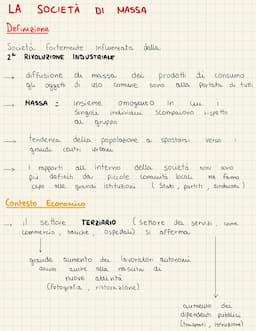 LA SOCIETÀ DI MASSA
Definizione
Società fortemente influenzata dalla
2ª RIVOLUZIONE INDUSTRIALE
→ diffusione di massa dei prodotti di consumo
gli oggetti di uso comune sono alla portata di tutti
→ MASSA = insieme omogeneo in cui i
singoli individui scompaiono rispetto
al gruppo
→ tendenza della popolazione a spostarsi verso i
grandi centri urbani
→ i rapporti all'interno della società non sono
più definiti da piccole comunità locali ma fanno
capo alle grandi istituzioni (Stati, partiti, sindacati)
Contesto Economico
→ il settore TERZIARIO (settore dei servizi, come
commercio, banche, ospedali) si afferma
grande aumento dei lavoratori autonomi
anche alla nascita di
nuove attività
(fotografia, ristorazione)
aumento dei
dipendenti pubblici
(trasporti, istruzione)